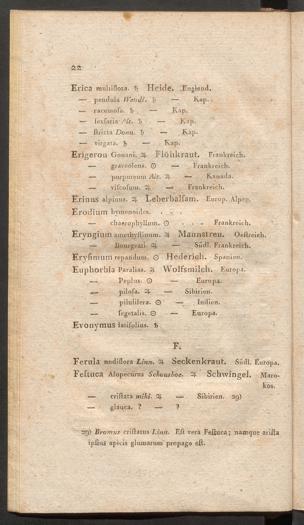 22
Erica multiflora. ♄ Heide. England.
— pendula Wendl. ♄ — Kap.
— racemosa. ♄ — Kap.
— sexfaria Ait. ♄ — Kap.
— stricta Donn. ♄ — Kap.
— virgata. ♄ — Kap.
Erigeron Gouani. ♃ Flöhkraut. Frankreich.
— graveolens. ☉ — Frankreich.
— purpureum Ait. ♃ — Kanada.
— viscosum. ♃ — Frankreich.
Erinus alpinus. ♃ Leberbalsam. Europ. Alpen.
Erodium hymenoides.
— chaerophyllum. ☉ Frankreich.
Eryngium amethystinum. ♃ Mannstreu. Oestreich.
— Bourgati. ♃ — Südl. Frankreich.
Erysimum repandum. ☉ Hederich. Spanien.
Euphorbia Paralias. ♃ Wolfsmilch. Europa.
— Peplus. ☉ — Europa.
— pilosa. ♃ — Sibirien.
— pilulifera. ☉ — Indien.
— segetalis. ☉ — Europa.
Evonymus latifolius. ♄
F.
Ferula nodiflora Linn. ♃ Seckenkraut. Südl. Europa.
Festuca Alopecurus Schousboe. ♃ Schwingel. Maro-
kos.
— cristata mihi. ♃ — Sibirien. 29)
— glauca. ? — ?
29) Bromus cristatus Linn. Est vera Festuca; namque arista
ipsius apicis glumarum propago est.